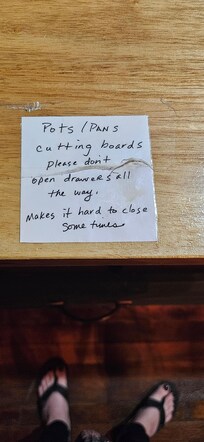 Pots / Pans
cutting boards
Please don't
open drawers all
the way.
Makes it hard to close
Some times